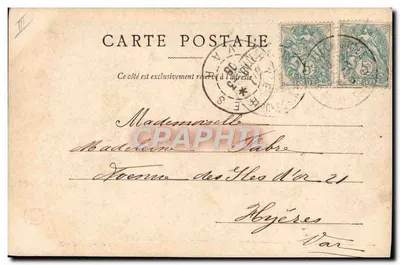 III
CARTE POSTALE
Ce côté est exclusivement réservé à l'adresse
HYÈRES
VAR
5
5
CRAPHT
Mademoiselle
Madeleine Fabre
Avenue des Iles d'Or 21
Hyères
Var